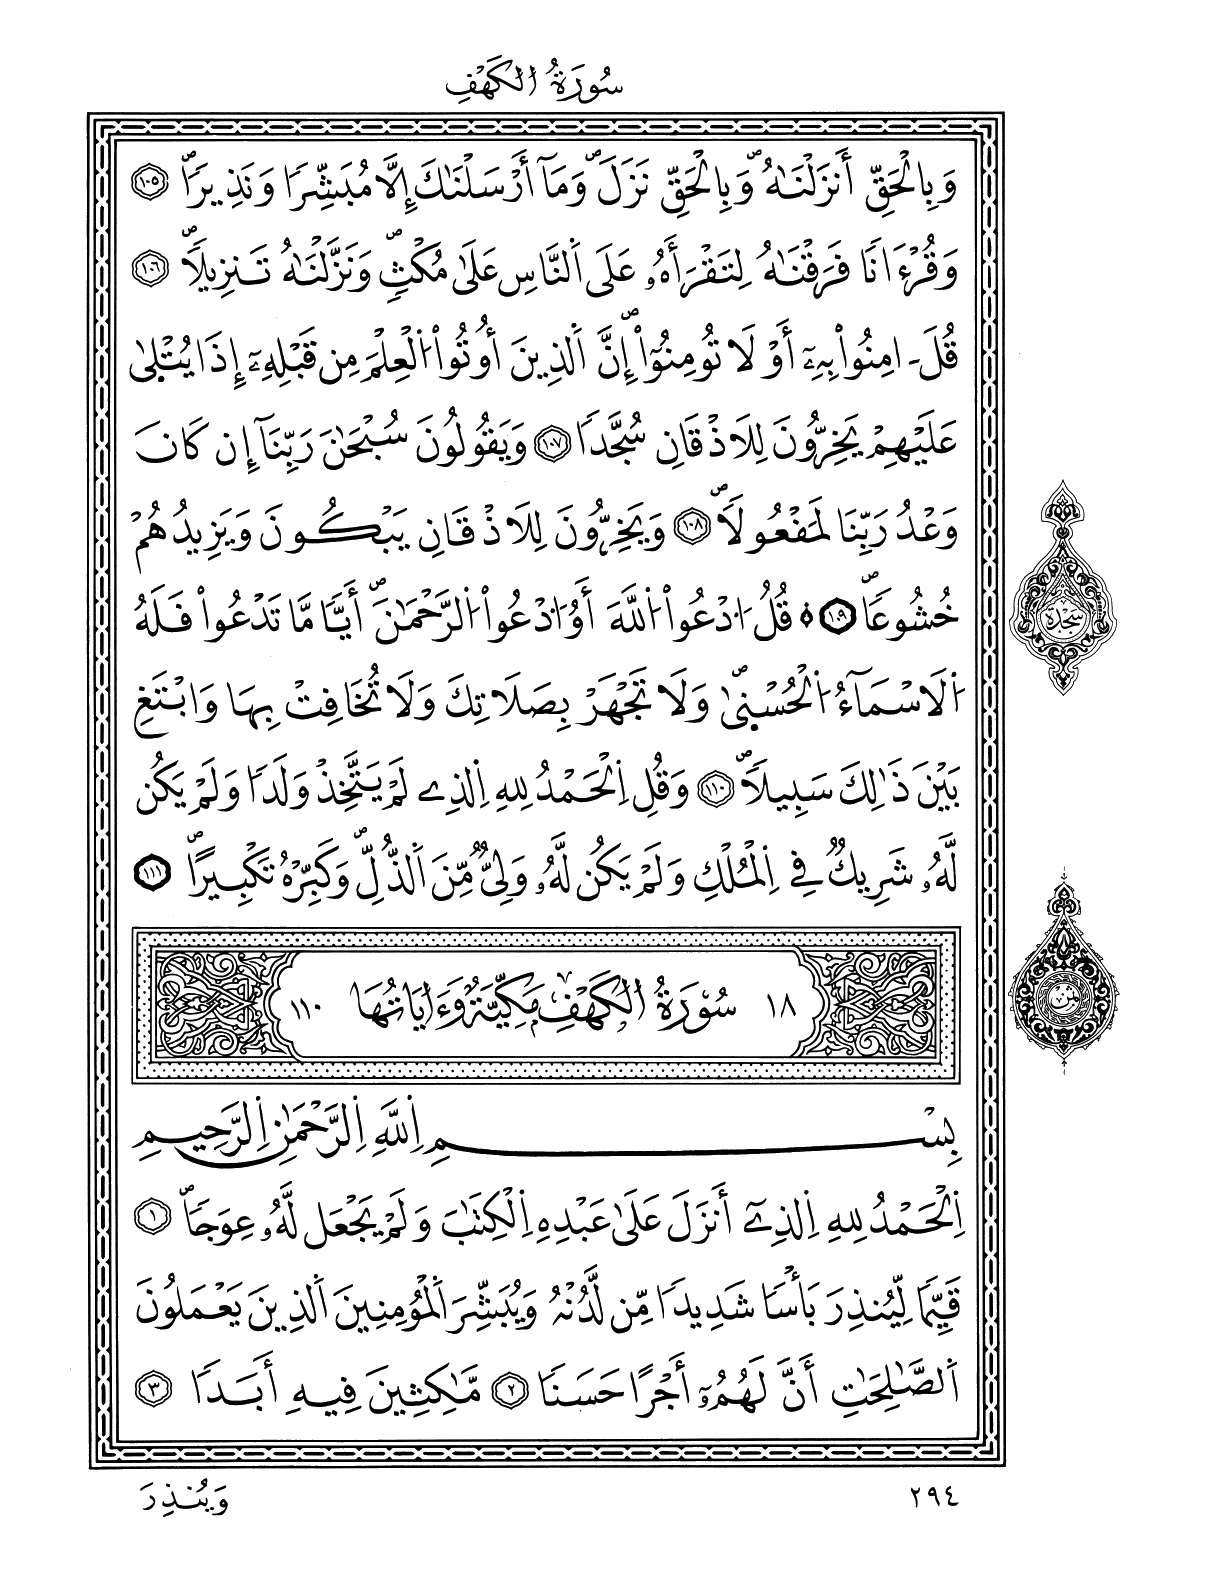 سُورَةُ الْكَهْفِ
وَبِالْحَقِّ أَنزَلْنَٰهُ وَبِالْحَقِّ نَزَلَۖ وَمَآ أَرْسَلْنَٰكَ إِلَّا مُبَشِّرًا وَنَذِيرًاۖ ١٠٥
وَقُرْءَانًا فَرَقْنَٰهُ لِتَقْرَأَهُۥ عَلَى اَلنَّاسِ عَلَىٰ مُكْثٍۖ وَنَزَّلْنَٰهُ تَنزِيلًاۖ ١٠٦
قُلَ ـ امِنُواْ بِهِۦٓ أَوْ لَا تُومِنُوٓاْۖ إِنَّ اَلذِينَ أُوتُواْ اُلْعِلْمَ مِن قَبْلِهِۦٓ إِذَا يُتْلَىٰ
عَلَيْهِمْ يَخِرُّونَ لِلَاذْقَانِ سُجَّدًا ١٠٧ وَيَقُولُونَ سُبْحَٰنَ رَبِّنَآ إِن كَانَ
وَعْدُ رَبِّنَا لَمَفْعُولًاۖ ١٠٨ وَيَخِرُّونَ لِلَاذْقَانِ يَبْكُونَ وَيَزِيدُهُمْ
خُشُوعًاۖ ۩ ١٠٩ قُلُ اُدْعُواْ اُللَّهَ أَوُ اُدْعُواْ اُلرَّحْمَٰنَۖ أَيًّا مَّا تَدْعُواْ فَلَهُ
اُلَاسْمَآءُ اُلْحُسْنَىٰۖ وَلَا تَجْهَرْ بِصَلَاتِكَ وَلَا تُخَافِتْ بِهَا وَابْتَغِ
بَيْنَ ذَٰلِكَ سَبِيلًاۖ ١١٠ وَقُلِ اِلْحَمْدُ لِلهِ اِلذِے لَمْ يَتَّخِذْ وَلَدًا وَلَمْ يَكُن
لَّهُۥ شَرِيكٌ فِے اِلْمُلْكِ وَلَمْ يَكُن لَّهُۥ وَلِيٌّ مِّنَ اَلذُّلِّۖ وَكَبِّرْهُ تَكْبِيرًاۖ ١١١
١٨ سُورَةُ الْكَهْفِ مَكِّيَّةٌ وَءَايَاتُهَا ١١٠
بِسْمِ اِللَّهِ اِلرَّحْمَٰنِ اِلرَّحِيمِ
اِلْحَمْدُ لِلهِ اِلذِےٓ أَنزَلَ عَلَىٰ عَبْدِهِ اِلْكِتَٰبَ وَلَمْ يَجْعَل لَّهُۥ عِوَجًاۖ ١
قَيِّمًا لِّيُنذِرَ بَأْسًا شَدِيدًا مِّن لَّدُنْهُ وَيُبَشِّرَ اَلْمُؤْمِنِينَ اَلذِينَ يَعْمَلُونَ
اَلصَّٰلِحَٰتِ أَنَّ لَهُمُۥٓ أَجْرًا حَسَنًا ٢ مَّٰكِثِينَ فِيهِ أَبَدًا ٣
سَجْدَة
ثُمُن
وَيُنذِرَ
٢٩٤